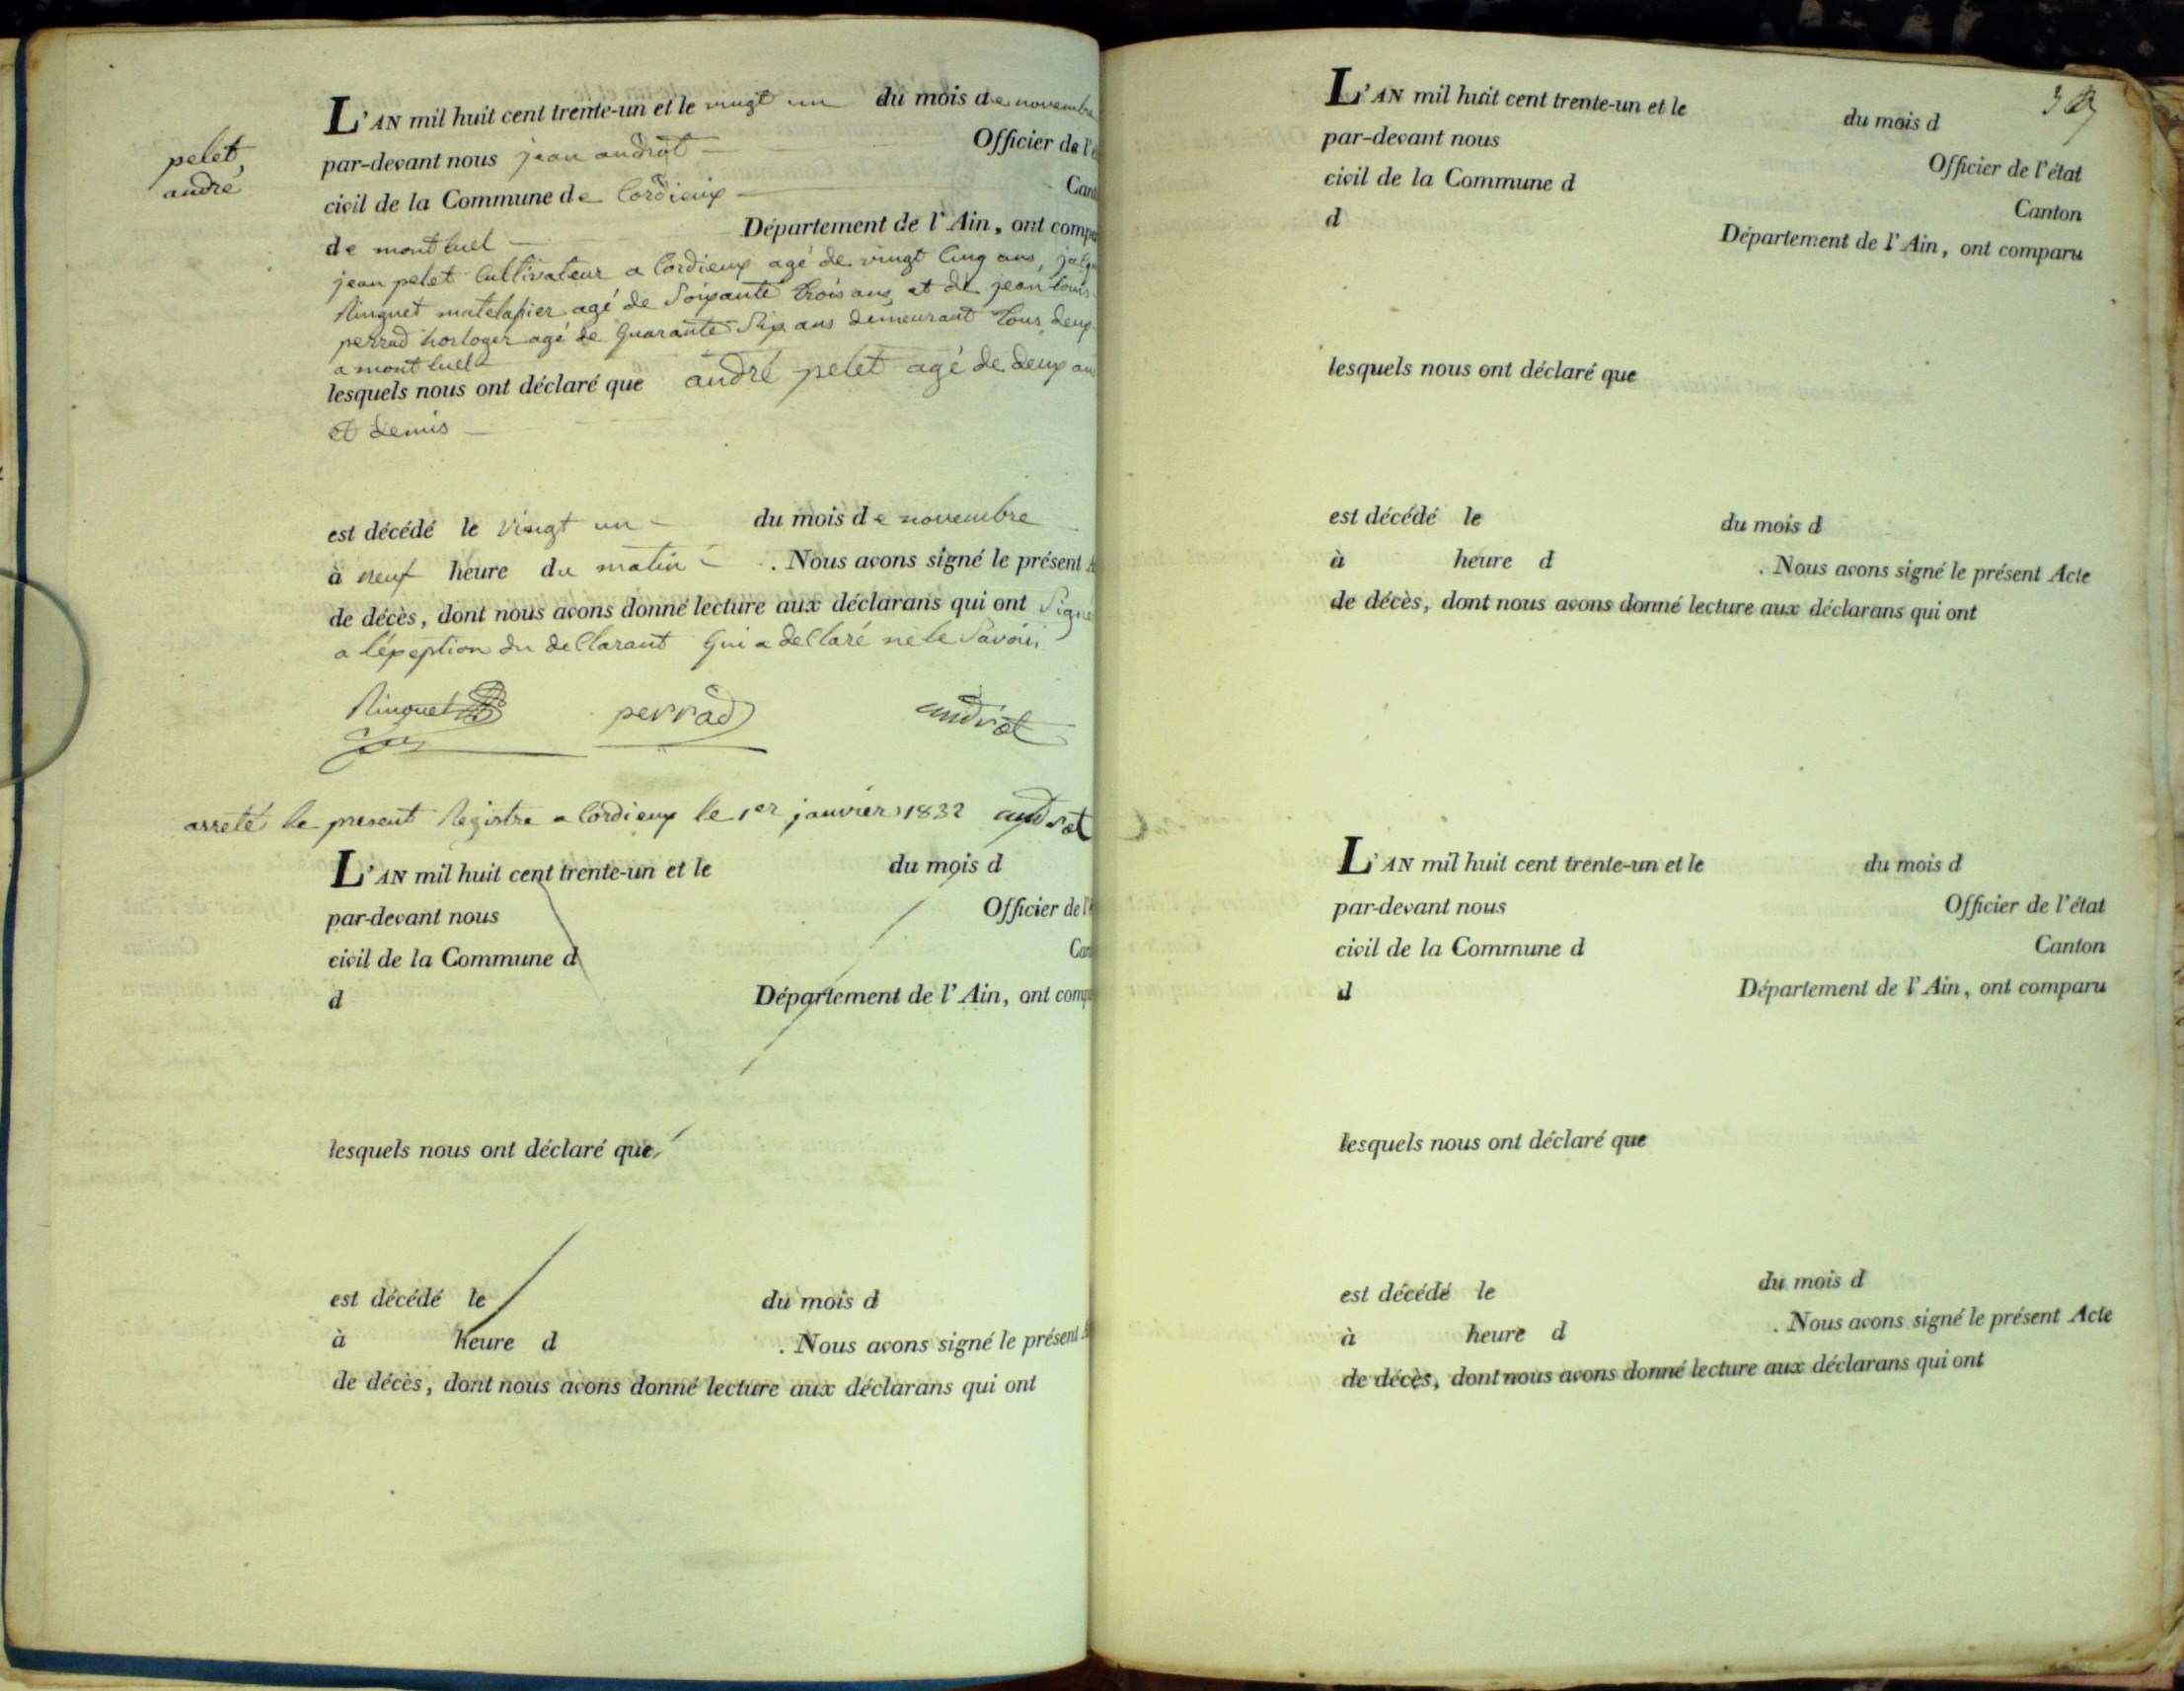 pelet,
andré
L'AN mil huit cent trente-un et le vingt un du mois de novembre
par-devant nous jean androt Officier de l'é
civil de la Commune de Cordieux Cant
de montluel Département de l'Ain, ont compa
jean pelet Cultivateur a Cordieux agé de vingt Cinq ans,
Ringuet matelassier agé de Soixante trois ans et de jean louis
perrad horloger agé de Quarante Six ans demeurant tous deux
a montluel
lesquels nous ont déclaré que andré pelet agé de deux an
et demis
est décédé le vingt un du mois de novembre
à neuf heure du matin . Nous avons signé le présent A
de décès, dont nous avons donné lecture aux déclarans qui ont Signé
a l'éxeption du deClarant Qui a deClaré ne le Savoir,
Ringuet perrad androt
arreté le present Registre a Cordieux le 1er janvier 1832 androt
L'AN mil huit cent trente-un et le du mois d
par-devant nous Officier de l'
civil de la Commune d Can
d Département de l'Ain, ont comp
lesquels nous ont déclaré que
est décédé le du mois d
à heure d . Nous avons signé le présent A
de décès, dont nous avons donné lecture aux déclarans qui ont
L'AN mil huit cent trente-un et le du mois d
par-devant nous Officier de l'état
civil de la Commune d Canton
d Département de l'Ain, ont comparu
lesquels nous ont déclaré que
est décédé le du mois d
à heure d . Nous avons signé le présent Acte
de décès, dont nous avons donné lecture aux déclarans qui ont
L'AN mil huit cent trente-un et le du mois d
par-devant nous Officier de l'état
civil de la Commune d Canton
d Département de l'Ain, ont comparu
lesquels nous ont déclaré que
est décédé le du mois d
à heure d . Nous avons signé le présent Acte
de décès, dont nous avons donné lecture aux déclarans qui ont